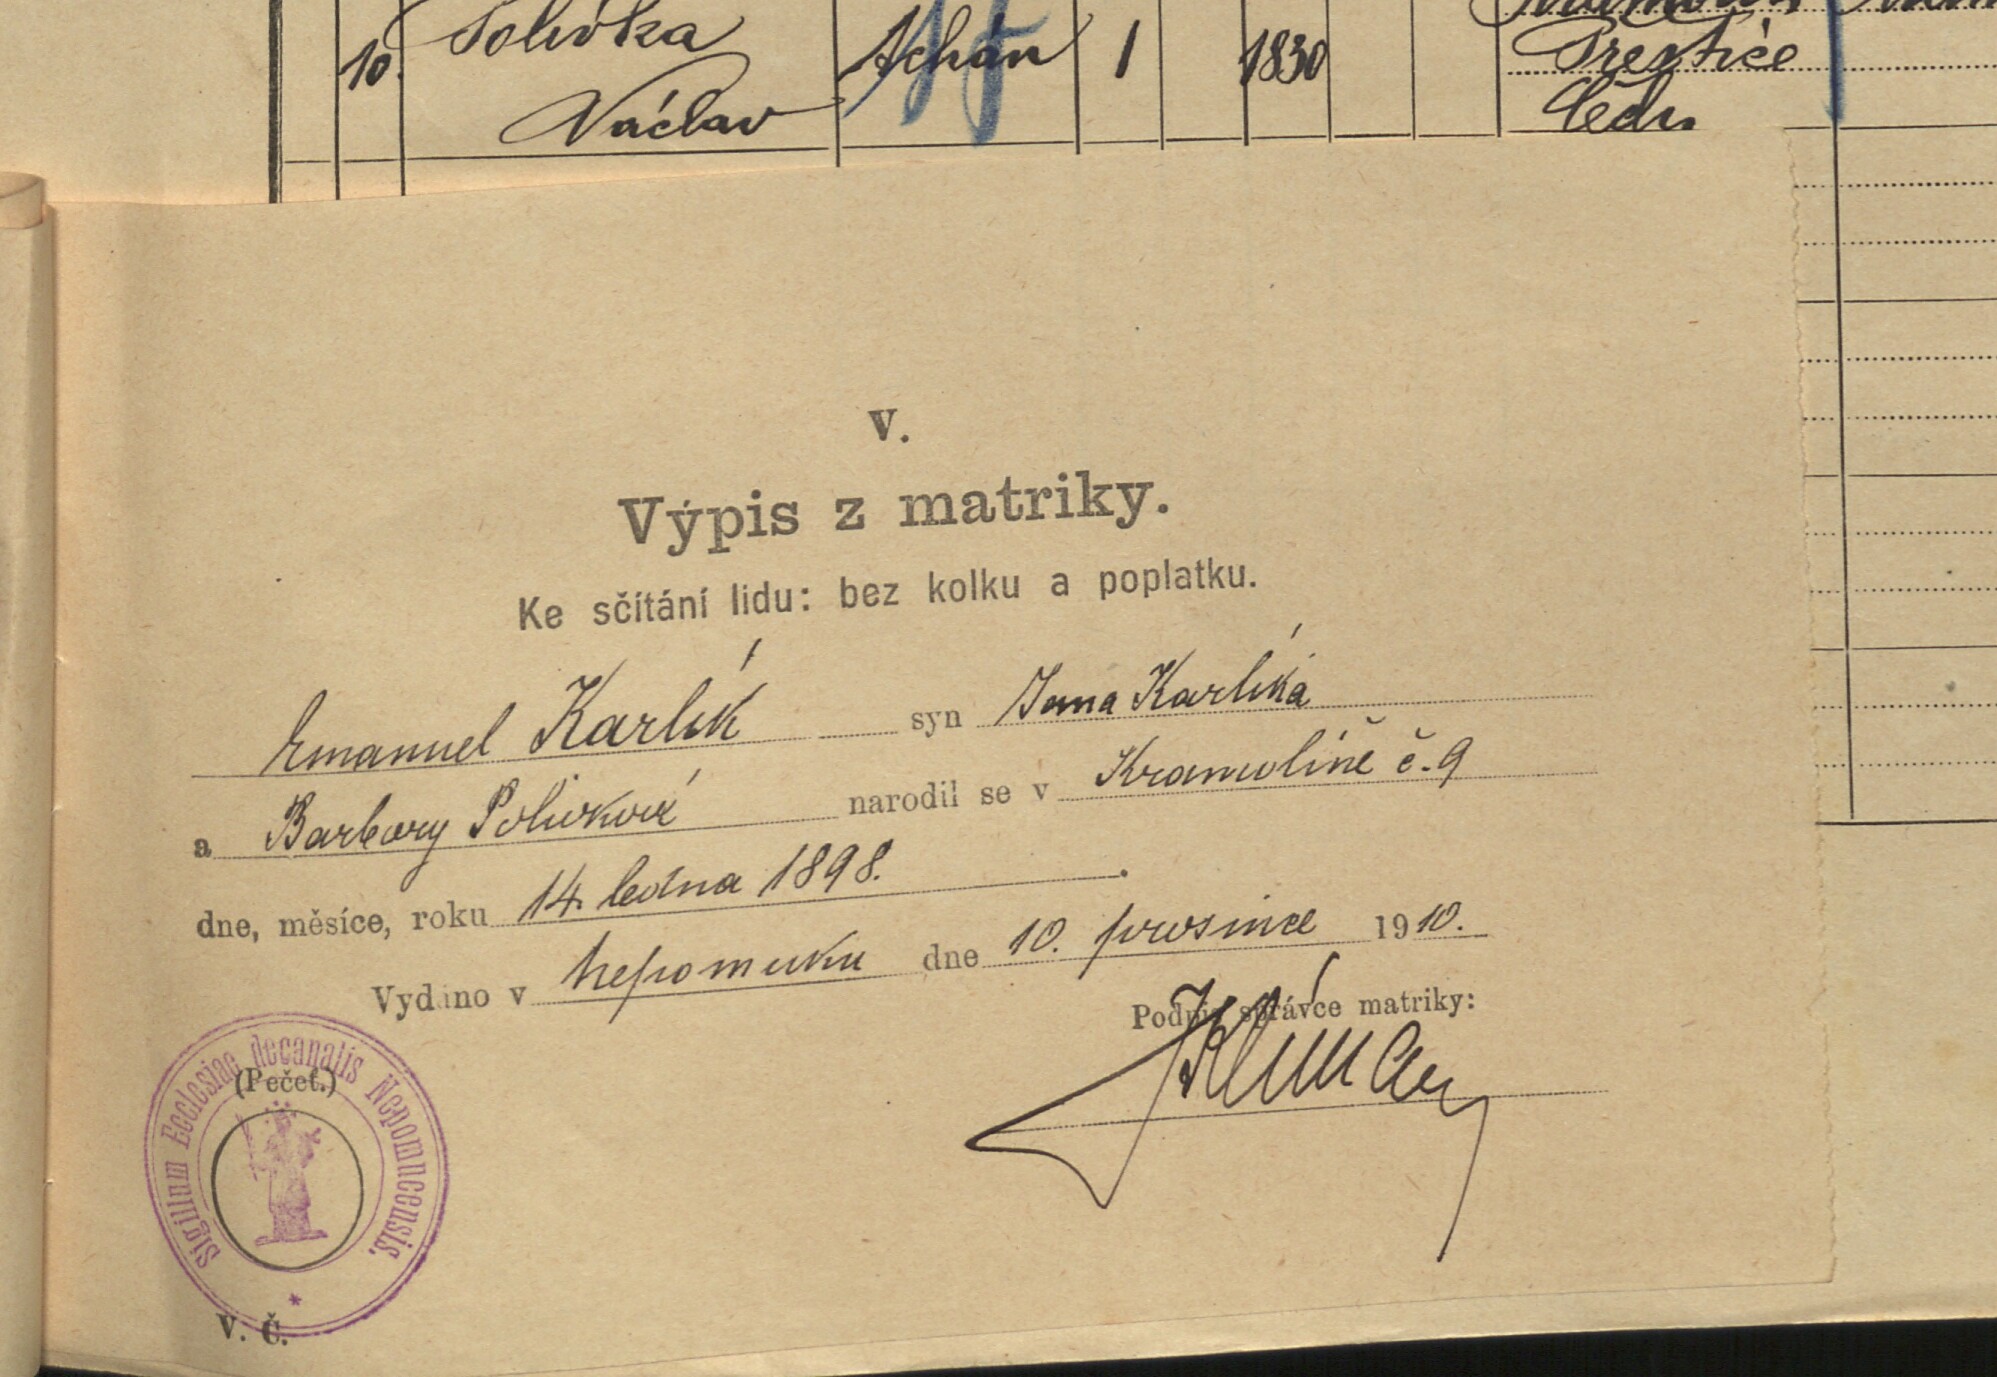 10. Polívka tchán 1 1830 Přeštice
Václav Čechy
V.
Výpis z matriky.
Ke sčítání lidu: bez kolku a poplatku.
Emanuel Karlík syn Jana Karlíka
a Barbory Polívkové narodil se v Kramolíně č. 9
dne, měsíce, roku 14. ledna 1898.
Vydáno v Nepomuku dne 10. prosince 1910.
Podpis správce matriky:
(Pečeť.)
Sigillum Ecclesiae decanalis Nepomucensis.
V. Č.